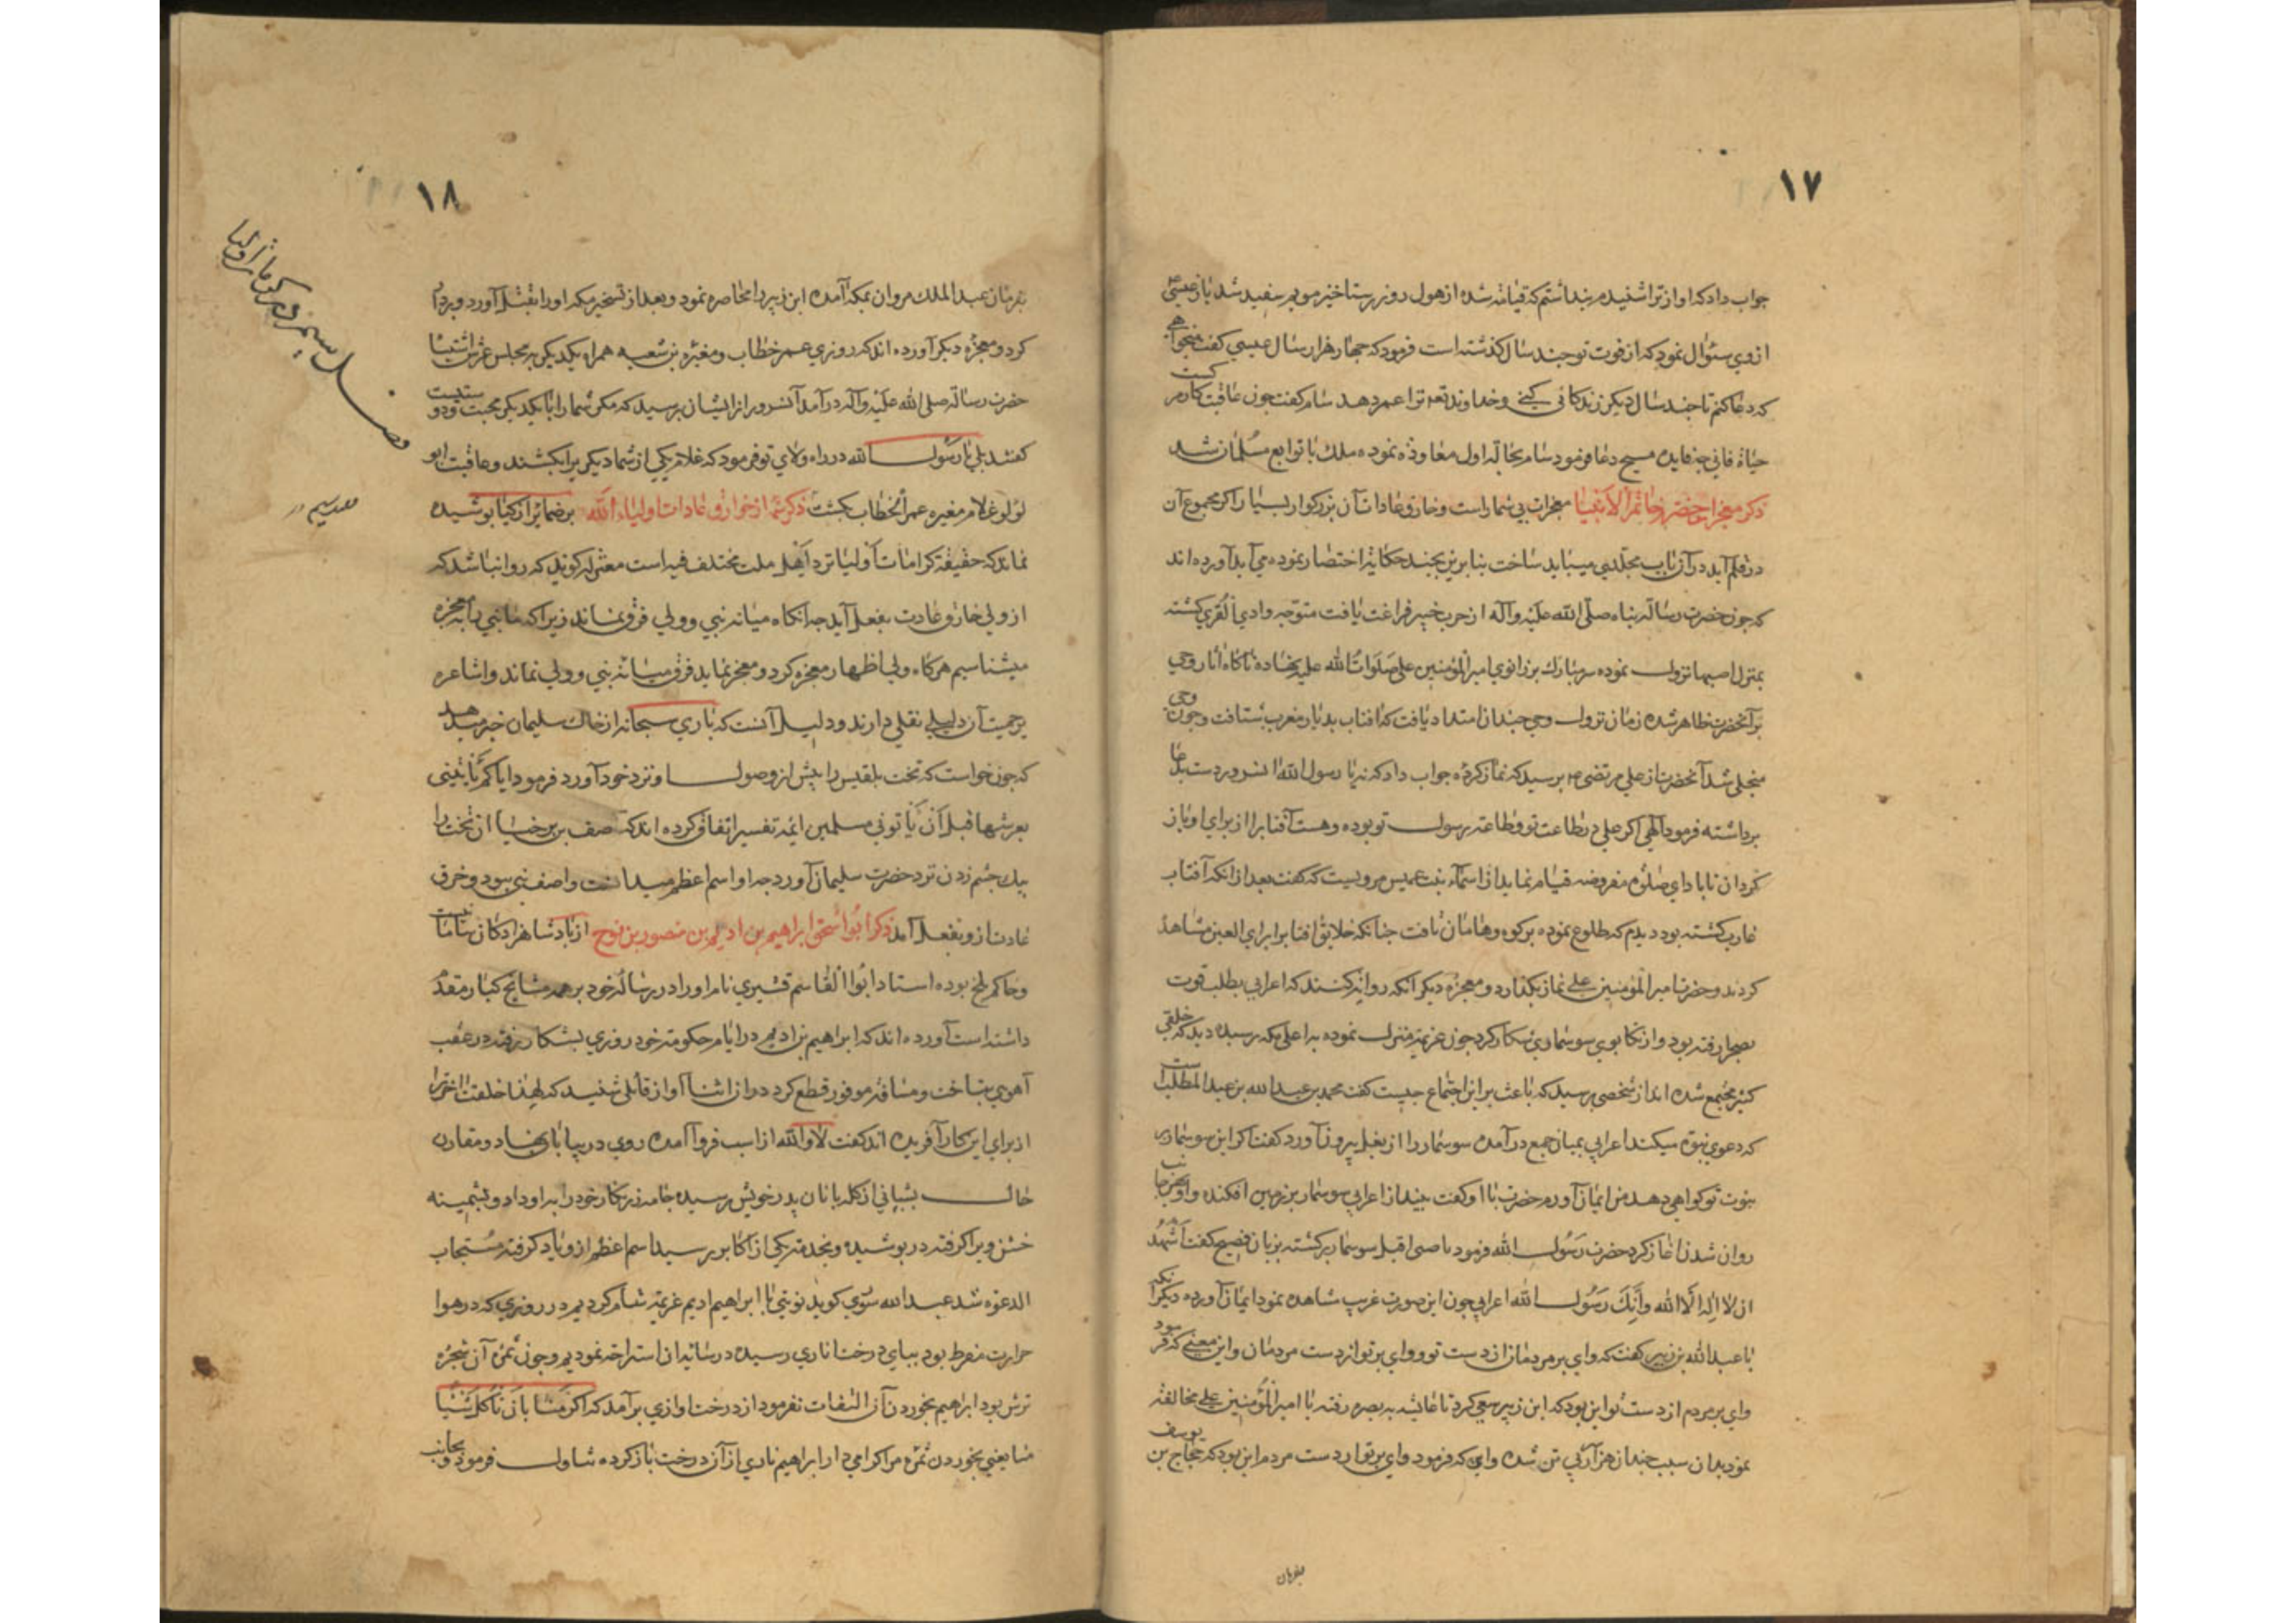 ۱۷
جواب داد که اواز ترا شنیدم پنداشتم که قیامة شده از هول روز رستاخیز مویم سفید شد باز عیسی
از وی سئوال نمود که از فوت تو چند سال کذشته است فرمود که چهار هزار سال عیسی کفت میخواهی
که دعا کنم تا چند سال دیکر زندکانی کنی وخداوند تعه ترا عمر دهد سام کفت چون عاقبت کار مرکست
حیاة فانی چه فایده مسیح دعا فرمود سام بحالة اول معاوذه نموده ملک با توابع مسلمان شد
ذکر معجزات حضرة خاتم الانبیا معجزات بی شمار است وخارق عادات آن بزرکوار بسیار اکر مجموع آن
در قلم آید در آن باب مجلدی میباید ساخت بنابرین بچند حکایة اختصار نموده می آید آورده اند
که چون حضرت رسالة پناه صلی الله علیه وآله از حرب خیبر فراغت یافت متوجه وادی القری کشته
بمنزل صهبا نزول نموده سر مبارک بر زانوی امیر المؤمنین علی صلوات الله علیه نهاده ناکاه اثار وحی
بر آنحضرت ظاهر شده زمان نزول وحی چندان امتداد یافت که افتاب بدیار مغرب شتافت وچون وحی
منجلی شد آنحضرت از علی مرتضی پرسید که نماز کرده جواب داد که نه یا رسول الله انسرور دست بدعا
برداشته فرمود الهی اکر علی در طاعت تو وطاعة رسول تو بوده وهست آفتابرا از برای او باز
کردان تا باداي صلوة مفروضه قیام نماید از اسماء بنت عمیس مرویست که کفت بعد از انکه آفتاب
غارب کشته بود دیدم که طلوع نموده بر کوه وهامان تافت چنانکه خلایق افتابرا برای العین مشاهده
کردند وحضرت امیر المؤمنین علی نماز بکذارد ومعجزه دیکر آنکه روایة کنند که اعرابی بطلب قوت
بصحرا رفته بود واز تکاپوی سوسماری شکار کرد چون عزیمة منزل نموده به اعلی مکه رسیده دید که خلقی
کثیر مجتمع شده اند از شخصی پرسید که باعث بر این اجتماع چیست کفت محمد بن عبد الله بن عبد المطلب است
که دعوی نبوة میکند اعرابی بمیان جمع در آمده سوسمار را از بغل بیرون آورد کفت اکر این سوسمار
بنبوت تو کواهی دهد من ایمان آورم حضرت با او کفت بینداز اعرابی سوسمار بر زمین افکنده واو بهر جانب
روان شدن اغاز کرد حضرت رسول الله فرمود یا صبی اقبل سوسمار برکشته بزبان فصیح کفت اشهد
ان لا اله الا الله وانک رسول الله اعرابی چون این صورت غریب مشاهده نمود ایمان آورده دیکر آنکه
با عبد الله بن زبیر کفت که وای بر مردمان از دست تو ووای بر تو از دست مردمان واین معنی که فرمود
وای بر مردم از دست تو این بود که ابن زبیر سعی کرد تا عایشه به بصره رفته با امیر المؤمنین علی مخالفة
نمود بدان سبب چندان هزار آدمی تن شده وای که فرمود وای بر تو از دست مردم این بود که حجاج بن یوسف
بفرمان
۱۸
بفرمان عبد الملک مروان بمکه آمده ابن زبیر را محاصره نمود وبعد از تسخیر مکه او را بقتل آورد وبردار
کرد ومعجزه دیکر آورده اند که روزی عمر خطاب ومغیره بن شعبه همراه یکدیکر به مجلس عرش اشتباه
حضرت رسالة صلی الله علیه وآله در آمد آنسرور از ایشان پرسید که مکر شما را با یکدیکر محبت ودوستیست
کفتند بلی یا رسول الله در راه ولای تو فرمود که غلام یکی از شما دیکریرا بکشند وعاقبت ابو
لؤلؤ غلام مغیره عمر الخطاب بکشت ذکر شمه از خوارق عادات اولیاء الله بر ضمایر ازکیا پوشیده
نماند که حقیقة کرامات اولیا نزد اهل ملت مختلف فیه است معتزله کویند که روا نباشد که
از ولی خارق عادت بفعل آید چه انکاه میانه نبی وولی فرق نماند زیرا که ما نبی را به معجزه
میشناسیم هرکاه ولی اظهار معجزه کرد ومعجز نماید فرق میانه نبی وولی نماند واشاعره
برحجیت آن دلیلی نقلی دارند ودلیل آنست که باری سبحانه از خاک سلیمان خبر میدهد
که چون خواست که تخت بلقیس را پیش از وصول او نزد خود آورد فرمود ایاکم یاتینی
بعرشها قبل ان یاتونی مسلمین ایمه تفسیر اتفاق کرده اند که آصف بن برخیا ان تخت را
بیک چشم زدن نزد حضرت سلیمان آورد چه او اسم اعظم میدانست واصف نبی نبود وخرق
عادت از و بفعل آمد ذکر ابو اسحق ابراهیم بن ادهم بن منصور بن نوح از پادشاهزادکانست اما
وحاکم بلخ بوده استاد ابو القاسم قشیری نام او را در رساله خود بر همه مشایخ کبار مقدم
داشته است آورده اند که ابراهیم بن ادهم در ایام حکومة خود روزی بشکار رفته در عقب
آهوی بتاخت ومسافة موفور قطع کرد در ان اثنا آواز قائلی شنید که لهذا خلقت اخر ترا
از برای این کار آفریده اند کفت لا والله از اسب فرو آمده روی در بیابان نهاد ومقارن
حال بشبانی از کله بانان پدر خویش رسیده جامه زرنکار خود را به او داد وپشمینه
خشن ویرا کرفته در پوشیده وبخدمة یکی از اکابر رسید اسم اعظم از و یاد کرفته مستجاب
الدعوه شد عبد الله سوی کوید نوبتی با ابراهیم ادهم عزیمة شام کردیم در روزی که در هوا
حرارت مفرط بود بپای درخت اناری رسیده در سایه ان استراحة نمودیم وچون ثمره آن شجره
ترش بود ابراهیم بخوردن آن التفات نفرمود از درخت اوازی بر آمد که اکرمنا بان تاکل شیئا
منا یعنی بخوردن ثمره مرا کرامی دار ابراهیم ناری از آن درخت باز کرده تناول فرمود وبجانب